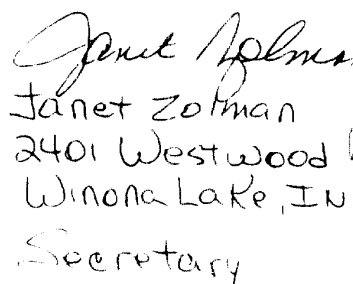 Janet Zolman
Janet Zolman
2401 Westwood
Winona Lake, IN
Secretary